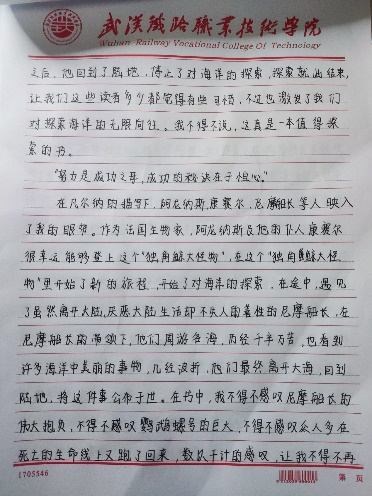 武汉铁路职业技术学院
Wuhan Railway Vocational College Of Technology
之后，他回到了陆地，停止了对海洋的探索，探索就此结束，
让我们这些读者多少都觉得有些可惜，不过也激发了我们
对探索海洋的无限向往。我不得不说，这真是一本值得探
索的书。
“努力是成功之母，成功的秘诀在于恒心。”
在凡尔纳的描写下，阿龙纳斯，康赛尔，尼摩船长等人映入
了我的眼帘。作为法国生物家，阿龙纳斯及他的仆人康赛尔
很幸运能够登上这个“独角鲸大怪物”，在这个“独角鲸大怪
物”里开始了新的旅程，开始了对海洋的探索，在途中，遇见
了虽然离开大陆，厌恶大陆生活却不失人的善性的尼摩船长，在
尼摩船长的带领下，他们周游各海，历经千辛万苦，也看到
许多海洋中美丽的事物，几经波折，他们最终离开大海，回到
陆地，将这件事公布于世。在书中，我不得不感叹尼摩船长的
伟大抱负，不得不感叹鹦鹉螺号的巨大，不得不感叹众人多在
死亡的生命线上又跑了回来，数以千计的感叹，让我不得不再
1705546
第 页